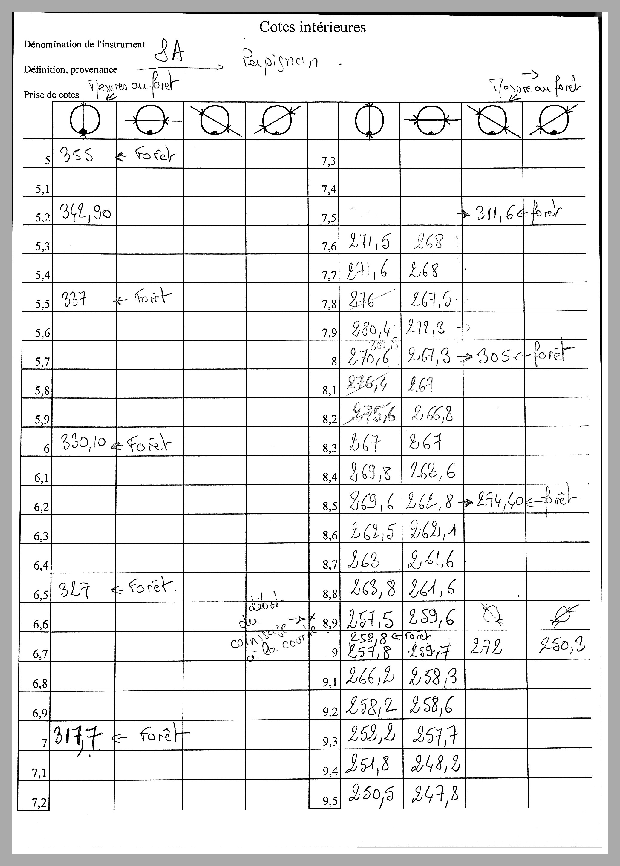 Cotes intérieures
Dénomination de l'instrument SA
Définition, provenance Perpignan
Prise de cotes au forêt au forêt
5 355 ← Forêt 7,3
5,1 7,4
5,2 342,90 7,5 → 311,6 ← forêt
5,3 7,6 271,5 268
5,4 7,7 271,6 268
5,5 337 ← Forêt 7,8 276 267,5
5,6 7,9 280,4
5,7 8 270,6 267,3 → 305 ← forêt
5,8 8,1
5,9 8,2 266,8
6 330,10 ← Forêt 8,3 267 267
6,1 8,4 269,8 262,6
6,2 8,5 269,6 262,8 → 274,40 ← forêt
6,3 8,6 262,5 262,1
6,4 8,7 263 261,6
6,5 327 ← Forêt 8,8 263,8 261,6
6,6 8,9 257,5 259,6
258,8 ← Forêt
6,7 9 257,8 259,7 272 250,3
6,8 9,1 266,2 258,3
6,9 9,2 258,2 258,6
7 317,7 ← Forêt 9,3 252,2 257,7
7,1 9,4 251,8 248,2
7,2 9,5 250,5 247,8